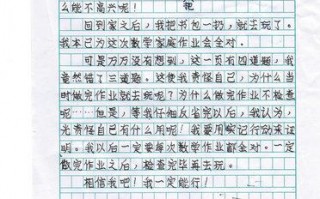 么能不高兴呢！
回到家之后，我把书包一扔，就去玩了。
我本已为这次数学家庭作业会全对。
可是万万没有想到，这一页有四道题，我
竟然错了三道题。这使我责怪自己，为什么当
时做完作业就去玩呢？为什么做完作业不检查
呢……但是，等我仔细反省完以后，我认为，
光责怪自己有什么用呢！我要用实记行动来证
明。我以后一定要每次数学作业都全对。一定
做完作业之后，检查完毕再去玩。
相信我吧！我一定能行！